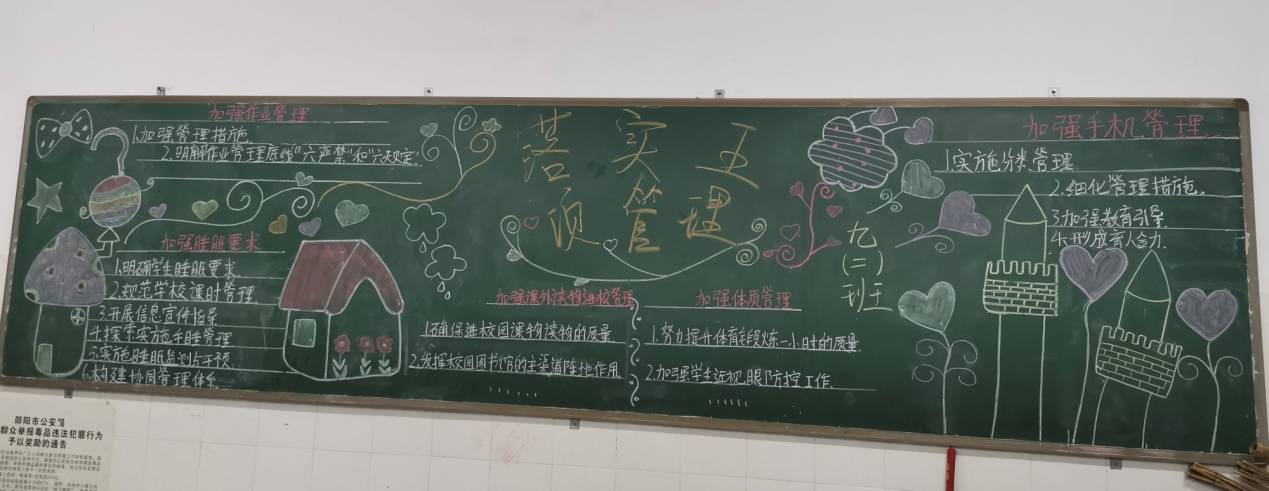 加强作业管理
1.加强管理措施.
2.明解作业管理底线"六严禁"和"六规定".
加强睡眠要求
1.明确学生睡眠要求.
2.规范学校课时管理.
3.开展信息宣传指导
4.探索实施手睡管理
5.实施睡眠监测与干预
6.构建协同管理体系.
落实五
项管理
九(二)班
加强课外读物进校管理
1.确保进校园课物读物的质量
2.发挥校园图书馆的主渠道阵地作用.
......
加强体质管理
1.努力提升体育锻炼一小时的质量.
2.加强学生近视眼防控工作
......
加强手机管理...
1.实施分类管理
2.细化管理措施.
3.加强教育引导
4.形成育人合力.
邵阳市公安局
群众举报毒品违法犯罪行为
予以奖励的通告